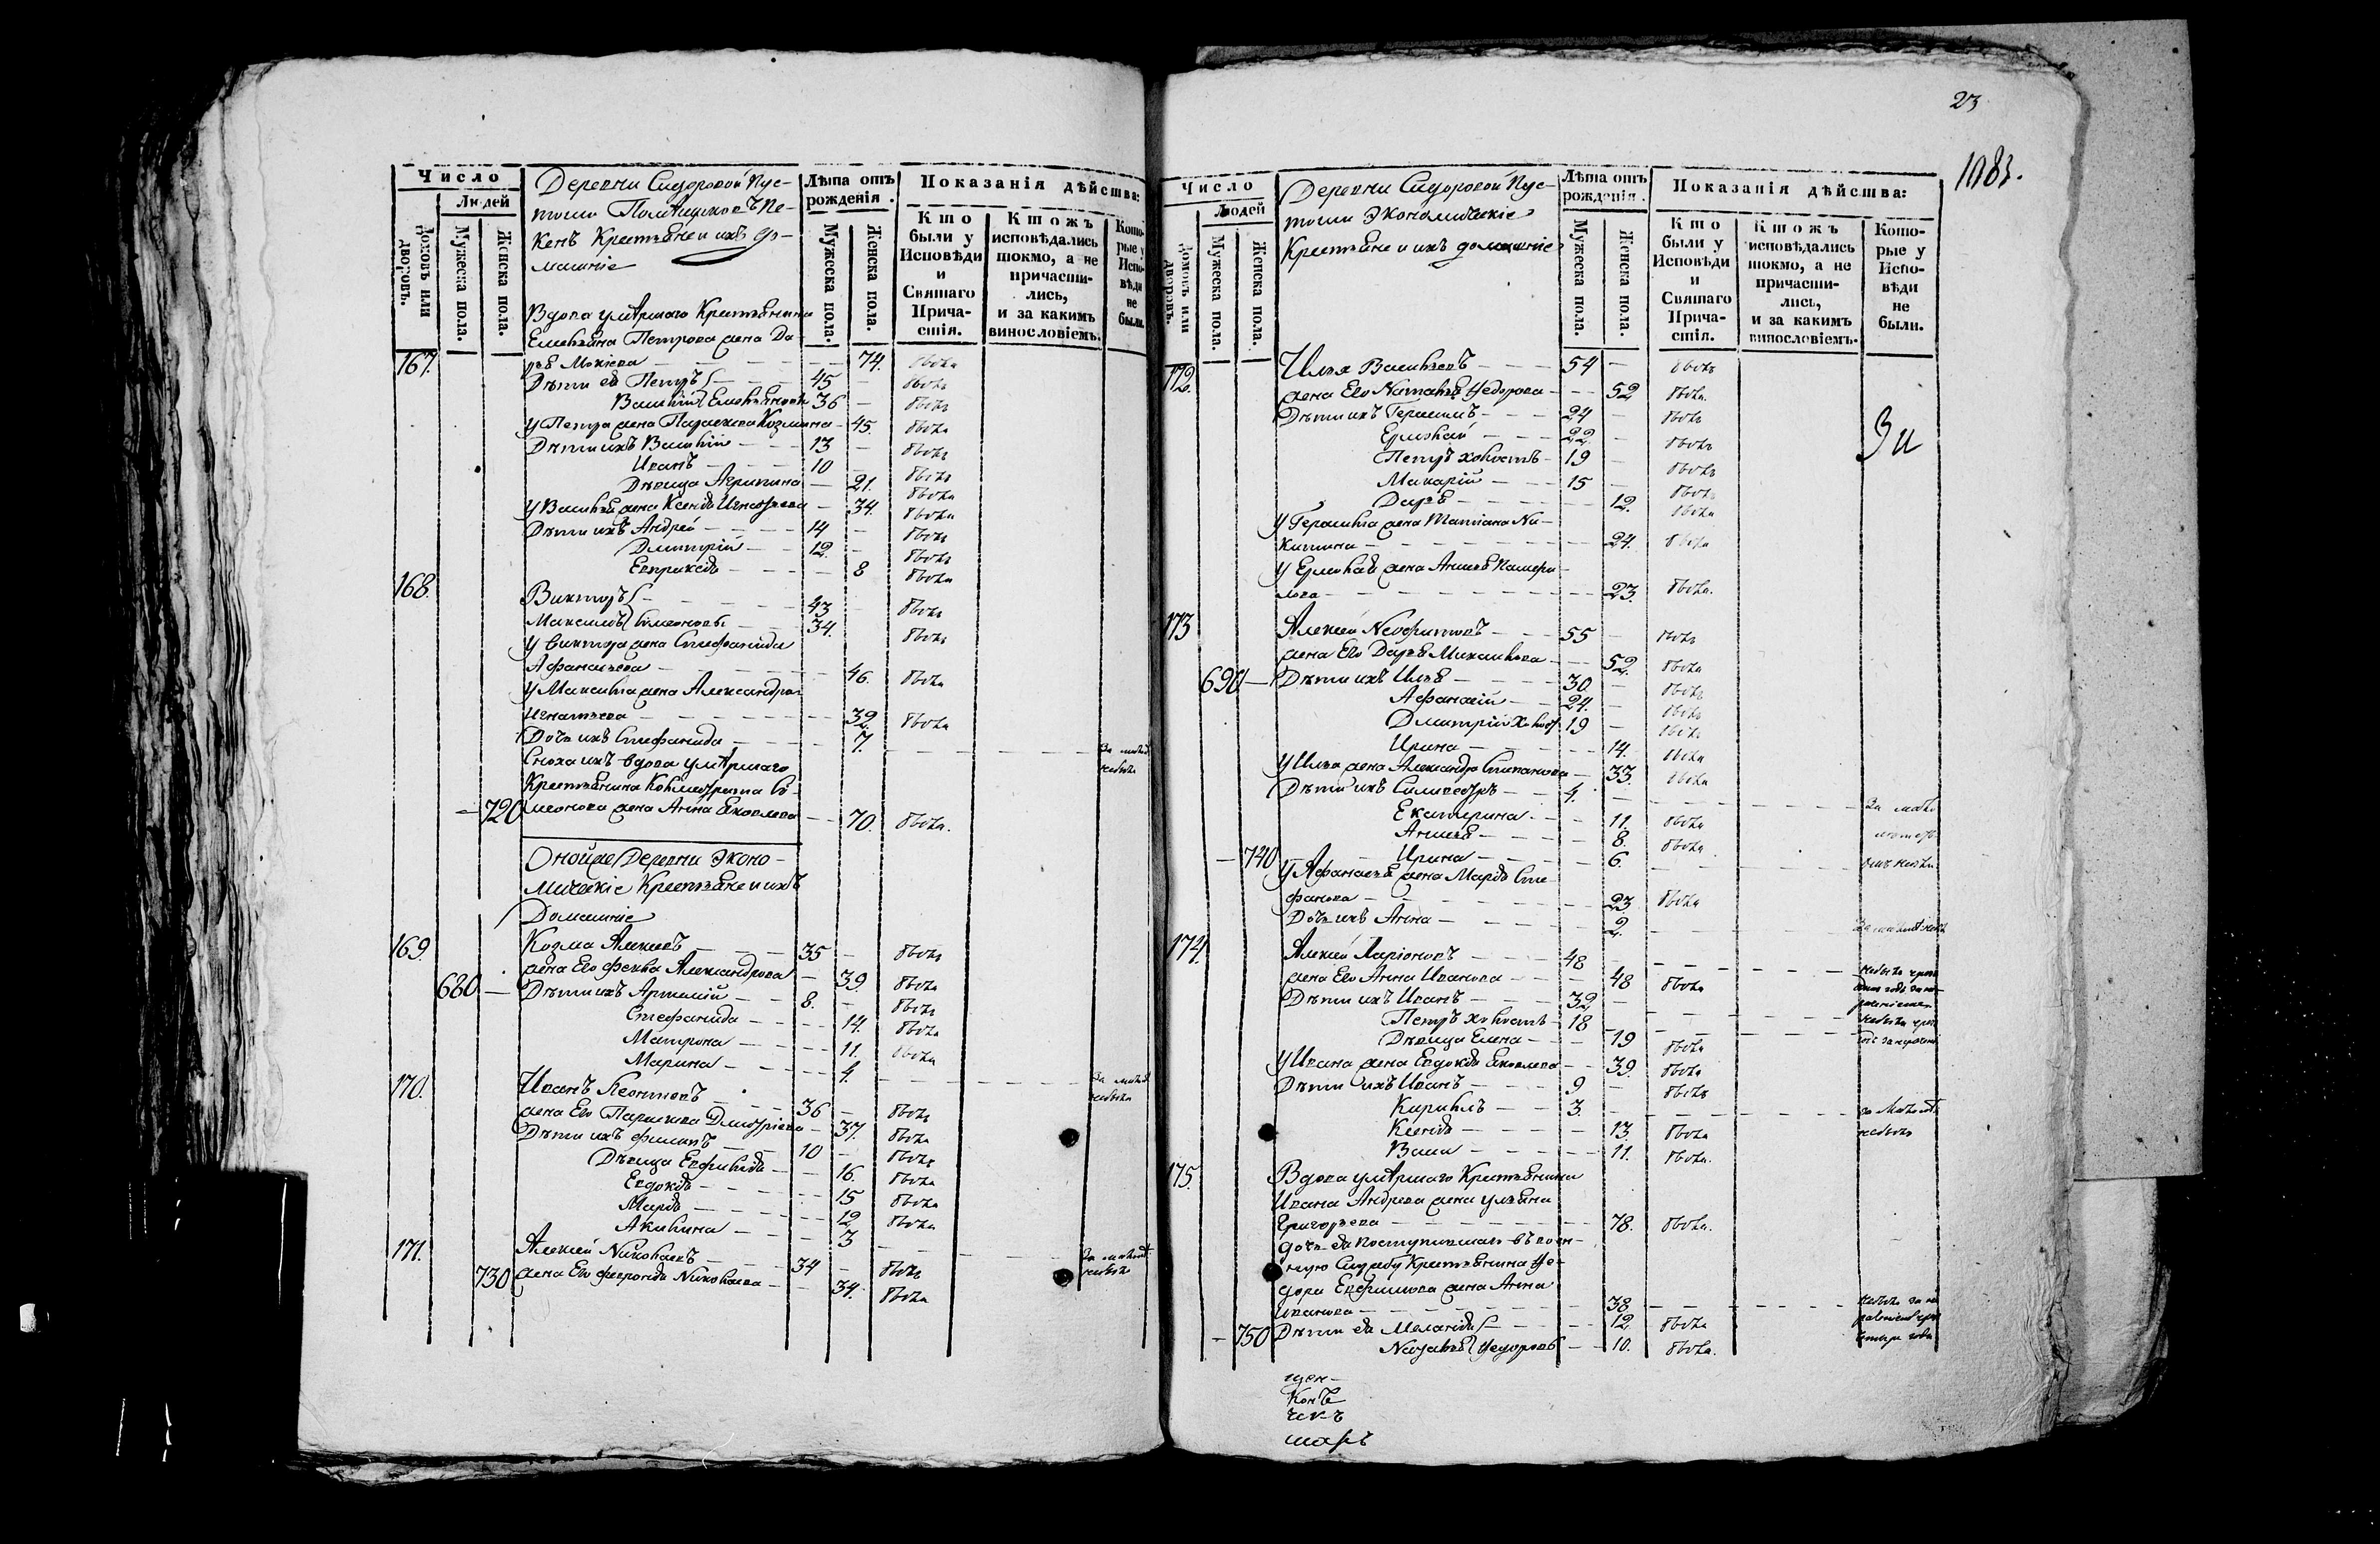 Число
Людей
Домовъ или дворовъ.
Мужеска пола.
Женска пола.
Деревни Сидоровой Пус-
тоши
Крестьяне и ихъ до-
машніе
Лѣта отъ рожденія.
Мужеска пола.
Женска пола.
Показанія дѣйства:
Кто были у Исповѣди и Святаго Причастія.
Ктожъ исповѣдались токмо, а не причастились, и за какимъ винословіемъ.
Которые у Исповѣди не были.
Вдова умѣршаго Крестьянина
Емельяна Петрова жена Да
167. рья Мокіева 74. была
Дѣти ея Петръ 45 былъ
Василій Емельяновы 36 былъ
У Петра жена Параскева Козмина 45. была
Дѣти ихъ Василій 13 былъ
Иванъ 10 былъ
Дѣвица Акрипина 21. была
У Василья жена Ксенія Игнатьева 34. была
Дѣти ихъ Андрей 14 былъ
Дмитрій 12. былъ
Евпраксія 8 была
168. Викторъ 43 былъ
Максимъ Симеоновы 34. былъ
У Виктора жена Стефанида
Афанасьева 46. была
У Максима жена Александра
Игнатьева 32 была
Дочь ихъ Стефанида 7. за малол
небыла
Сноха ихъ вдова умѣршаго
Крестьянина
720 меонова жена Анна Яковлева 70. была.
Оной же Деревни Эконо-
мическіе Крестьяне и ихъ
Домашніе
169. Козма Алексеевъ 35 былъ
жена Его Фекла Александрова 39. была
680 Дѣти ихъ Артемій 8. былъ
Стефанида 14. была
Матрона 11. была
Марина 4. за малол
небыла
170. Иванъ Леонтьевъ 36 былъ
жена Его Параскева Дмитріева 37. была
Дѣти ихъ Филипъ 10 былъ
Дѣвица Евфимія 16. была
Евдокія 15 была
Марія 12 была
Акилина 3 за малолѣт
небыла
171. Алексѣй Николаевъ 34 былъ
730 жена Его Феврония Николаева 34. была
23
1083.
Число
Людей
Домовъ или дворовъ.
Мужеска пола.
Женска пола.
Деревни Сидоровой Пус-
тоши Экономическіе
Крестьяне и ихъ домашніе
Лѣта отъ рожденія.
Мужеска пола.
Женска пола.
Показанія дѣйства:
Кто были у Исповѣди и Святаго Причастія.
Ктожъ исповѣдались токмо, а не причастились, и за какимъ винословіемъ.
Которые у Исповѣди не были.
172. Илья Васильевъ 54 былъ
жена Его Наталья Федорова 52 была.
Дѣти ихъ Герасимъ 24 былъ
Ермолай 22. былъ
Петръ холостъ 19 былъ
Макарій 15 былъ
Дарья 12. была
У Герасима жена Татіана Ни-
китина 24. была
У Ермолая жена Анисья
23. была.
173 Алексѣй Неофитовъ 55 былъ
жена Его Дарья Михайлова 52. была
690 Дѣти ихъ Илья 30. былъ
Афанасій 24. былъ
Дмитрій холост 19 былъ
Ирина 14. была
У Ильи жена Александра Степанова 33. была
Дѣти ихъ Силивестръ 4. за малол
Екатерина 11. была
Анисья 8. была
740 Ирина 6.
У Афанасья жена Марія Сте-
фанова 23 была
Дочь ихъ Анна 2.
174. Алексѣй Ларіоновъ 48
жена Его Анна Иванова 48 была
Дѣти ихъ Иванъ 32
Петръ холостъ 18
Дѣвица Елена 19 была
У Ивана жена Евдокія Яковлева 39. была
Дѣти ихъ Иванъ 9 былъ
Кирилъ 3. за малолѣт
небылъ
Ксенія 13. была
Васа 11. была.
175. Вдова умѣршаго Крестьянина
Ивана Андреева жена Ульяна
Григорьева 78. была.
дочь ея поступившаго въ воен-
ную Службу Крестьянина Фе-
дора Евфимова жена Анна
Иванова 38
750 Дѣти ея Меланія 12 была
Федоровы 10. была.